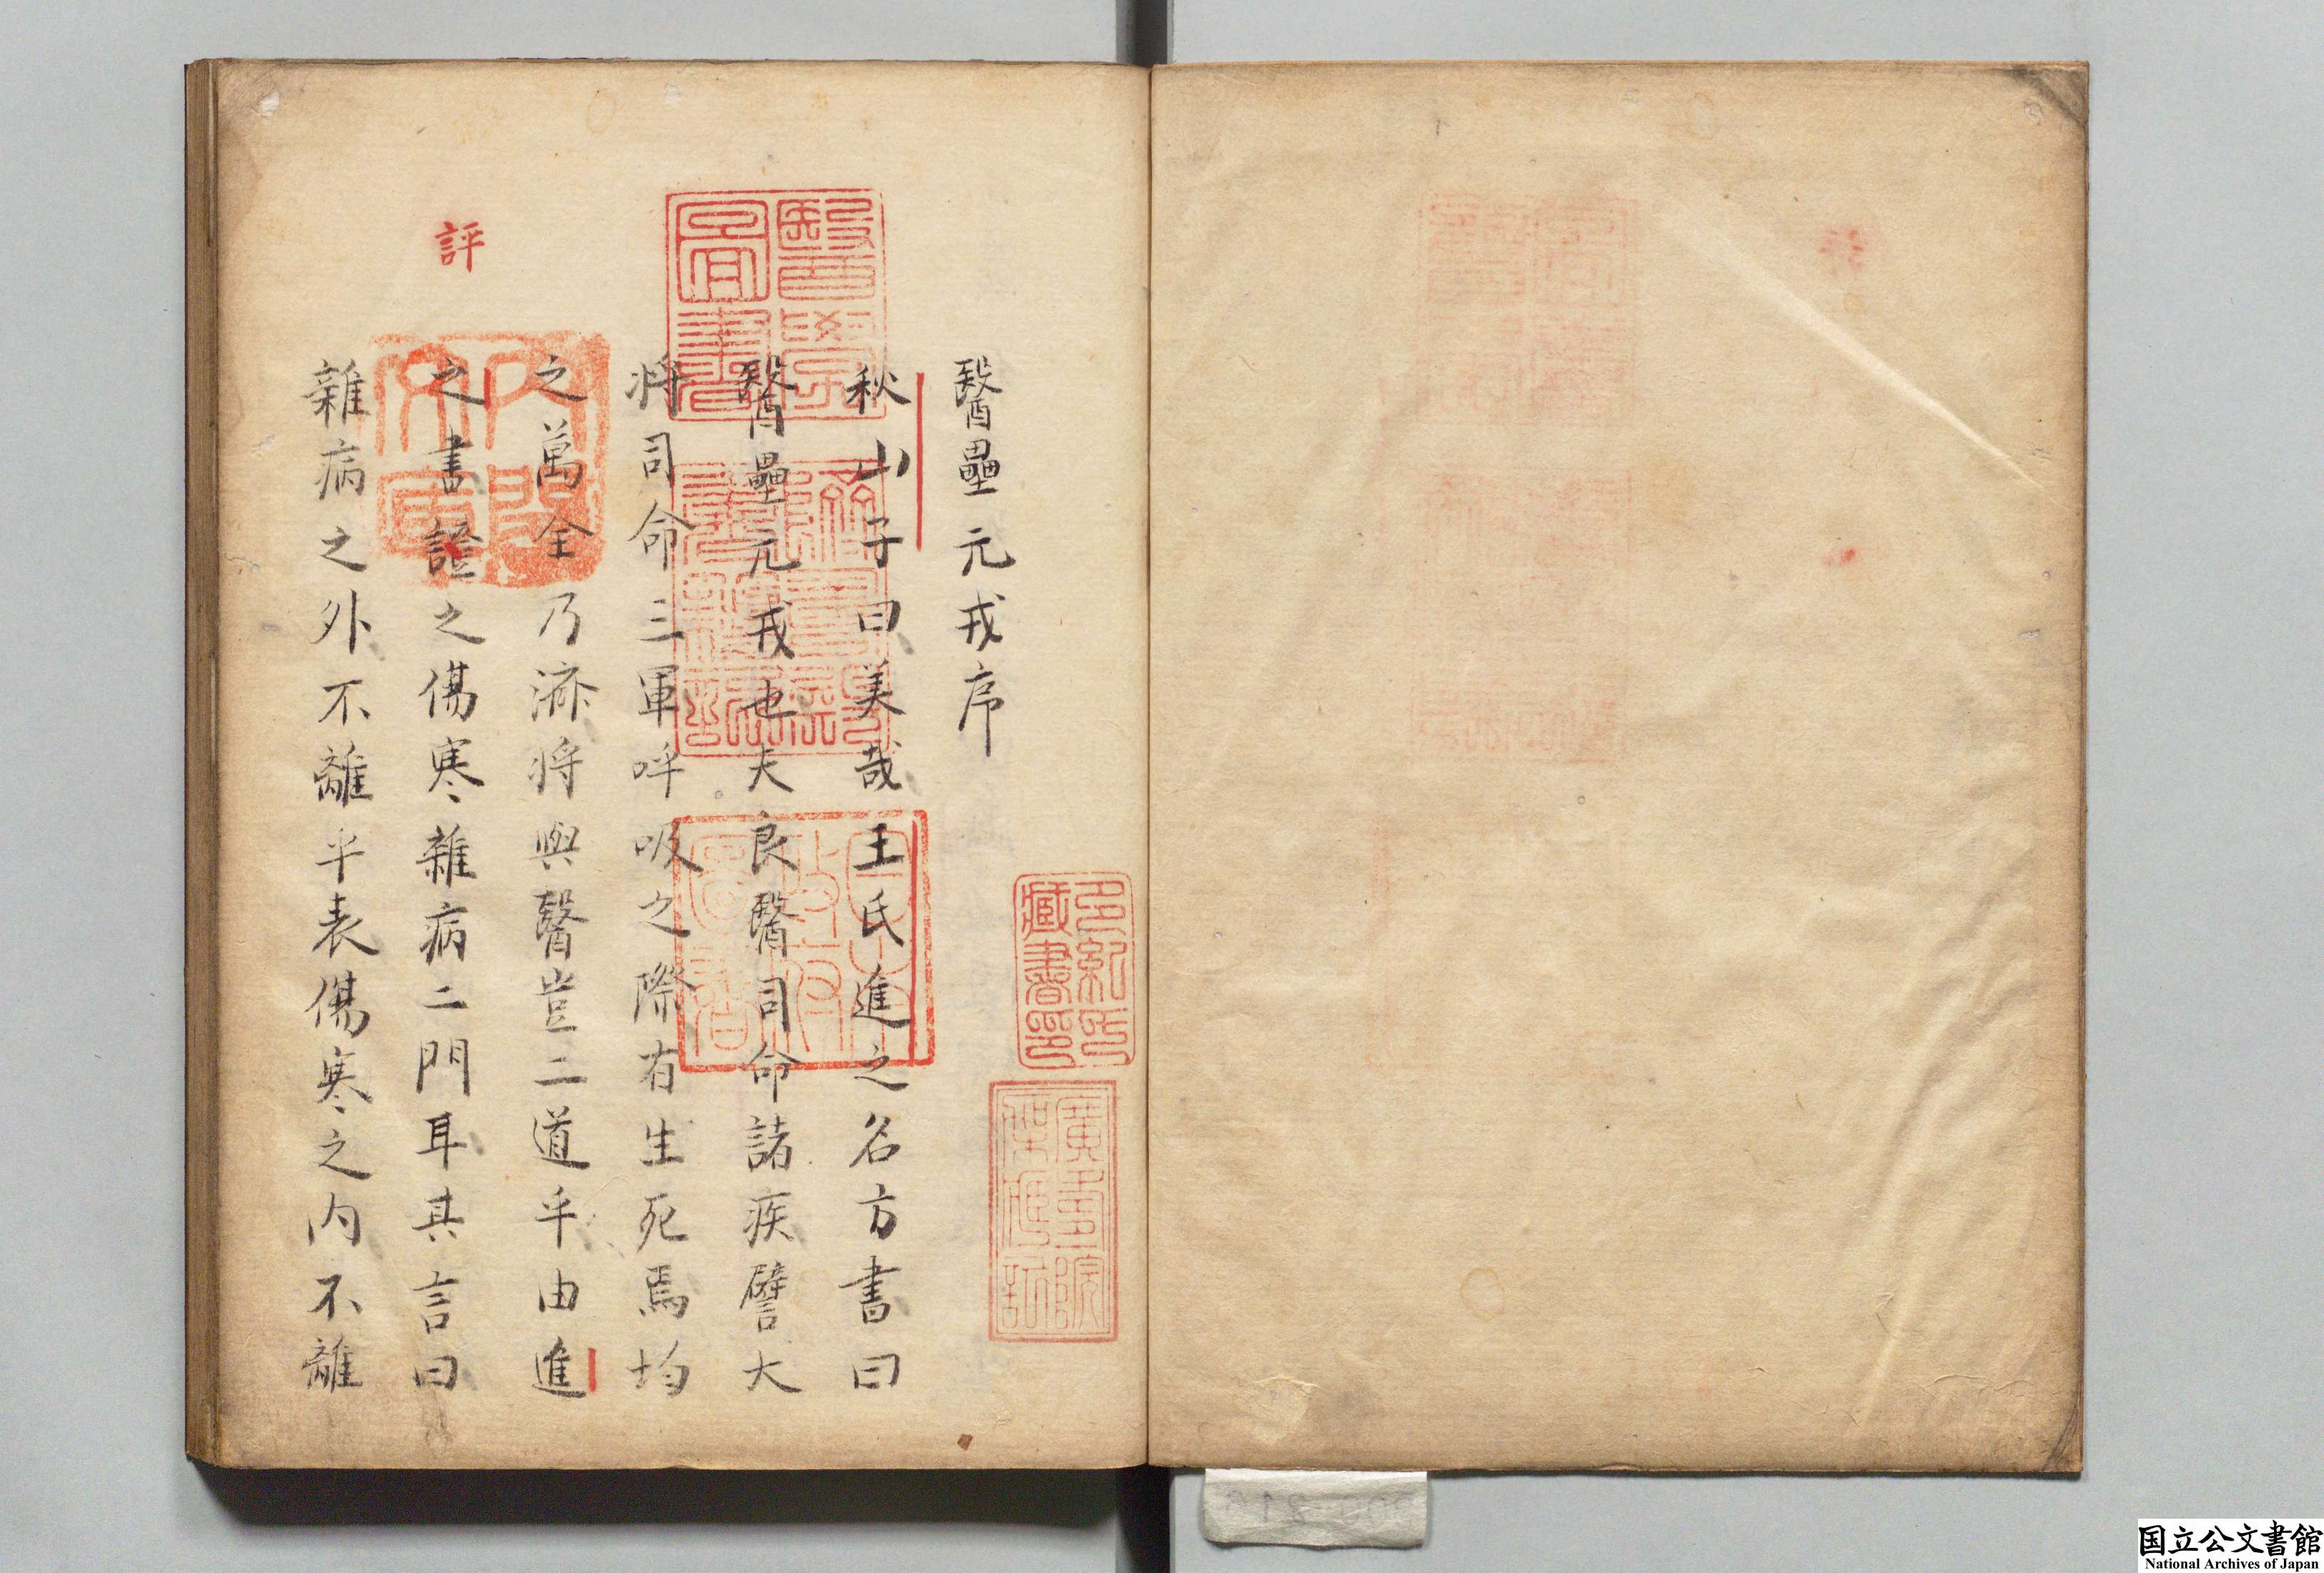 醫壘元戎序
秋山子曰美哉王氏進之名方書曰
醫壘元戎也夫良醫司命諸疾譬大
將司命三軍呼吸之際有生死焉均
之萬全乃濟將與醫豈二道乎由進
之書證之傷寒雜病二門耳其言曰
雜病之外不離乎表傷寒之内不離
評
醫學圖書
多紀氏藏書印
廣壽院架藏記
日本政府圖書
内閣文庫
国立公文書館
National Archives of Japan